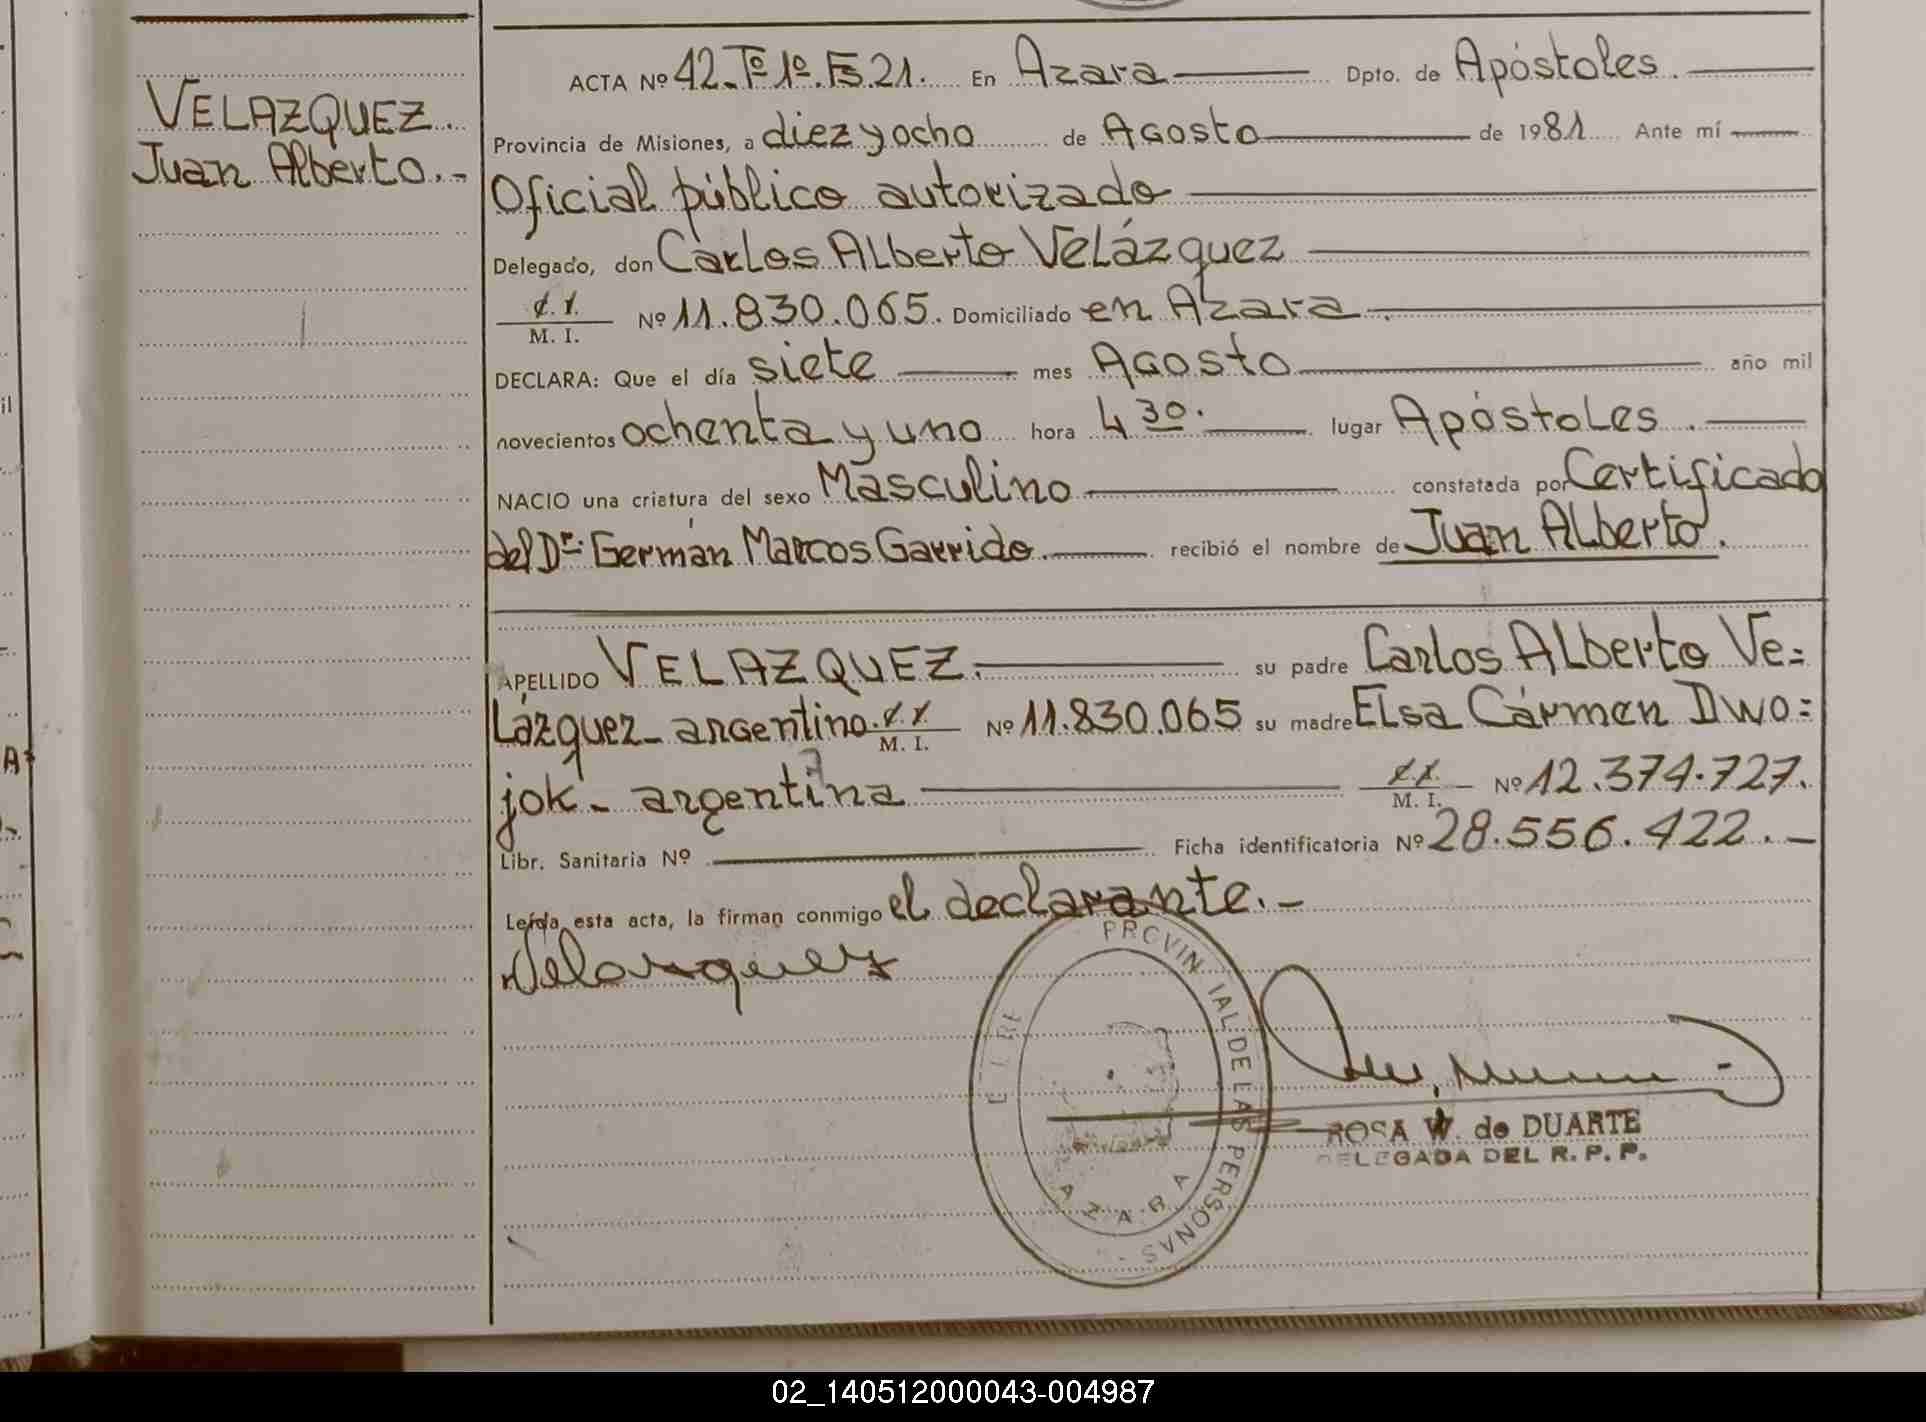 VELAZQUEZ.
Juan Alberto.-
ACTA Nº 42_Tº 1º.Fs.21. En Azara Dpto. de Apóstoles.
Provincia de Misiones, a diez y ocho de Agosto de 1981 Ante mí
Oficial público autorizado
Delegado, don Carlos Alberto Velázquez
M. I. Nº 11.830.065. Domiciliado en Azara.
DECLARA: Que el día siete mes Agosto año mil
novecientos ochenta y uno hora 4 30. lugar Apóstoles.
NACIO una criatura del sexo Masculino constatada por Certificado
del Dr. Germán Marcos Garrido. recibió el nombre de Juan Alberto.
APELLIDO VELAZQUEZ. su padre Carlos Alberto Ve=
lázquez_ argentino. M. I. Nº 11.830.065 su madre Elsa Cármen Dwo=
jok_ argentina M. I. Nº 12.374.727.
Libr. Sanitaria Nº Ficha identificatoria Nº 28.556.422._
Leída esta acta, la firman conmigo el declarante._
Velazquez
PROVIN IAL DE LAS PERSONAS
AZARA
ROSA W. de DUARTE
DELEGADA DEL R. P. P.
02_140512000043-004987